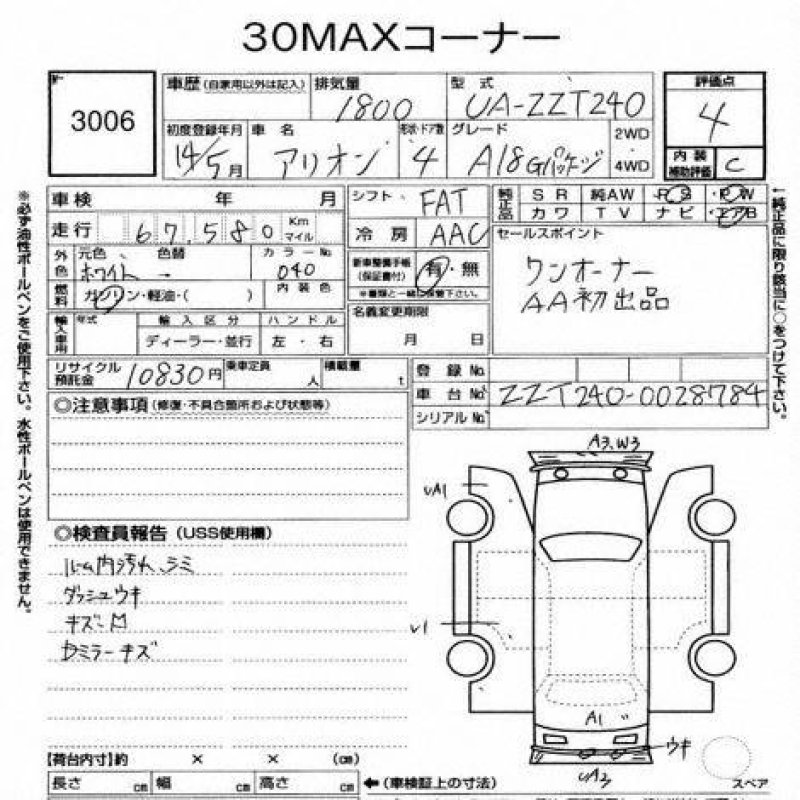 30MAXコーナー
3006
車歴 (自家用以外は記入) 排気量 1800 型式 UA-ZZT240
評価点 4
初度登録年月 14/5月 車名 アリオン 形状・ドア数 4 グレード A18Gパッケジ 2WD 4WD
内装補助評価 C
車検 年 月 シフト FAT 純正品 SR 純AW PS PW
カワ TV ナビ エアB
走行 67,580 Km マイル 冷房 AAC セールスポイント
外色 元色 ホワイト 色替 → カラーNo 040 新車整備手帳(保証書付) 有・無
ワンオーナー
AA初出品
燃料 ガソリン・軽油・( ) 内装色 ※書類と一緒に保管下さい。
輸入車用 年式 輸入区分 ハンドル 名義変更期限
ディーラー・並行 左・右 月 日
リサイクル預託金 10830円 乗車定員 人 積載量 t 登録No.
車台No. ZZT240-0028784
シリアルNo.
◎注意事項 (修復・不具合箇所および状態等)
◎検査員報告 (USS使用欄)
ルーム内汚れ、シミ
ダッシュウキ
キズ・凹
ミラーキズ
A3.W3
UA1
A1
ウキ
スペア
【荷台内寸】約 × × (cm)
長さ cm 幅 cm 高さ cm ←(車検証上の寸法)
※必ず油性ボールペンをご使用下さい。水性ボールペンは使用できません。
←純正品に限り該当に○をつけて下さい。